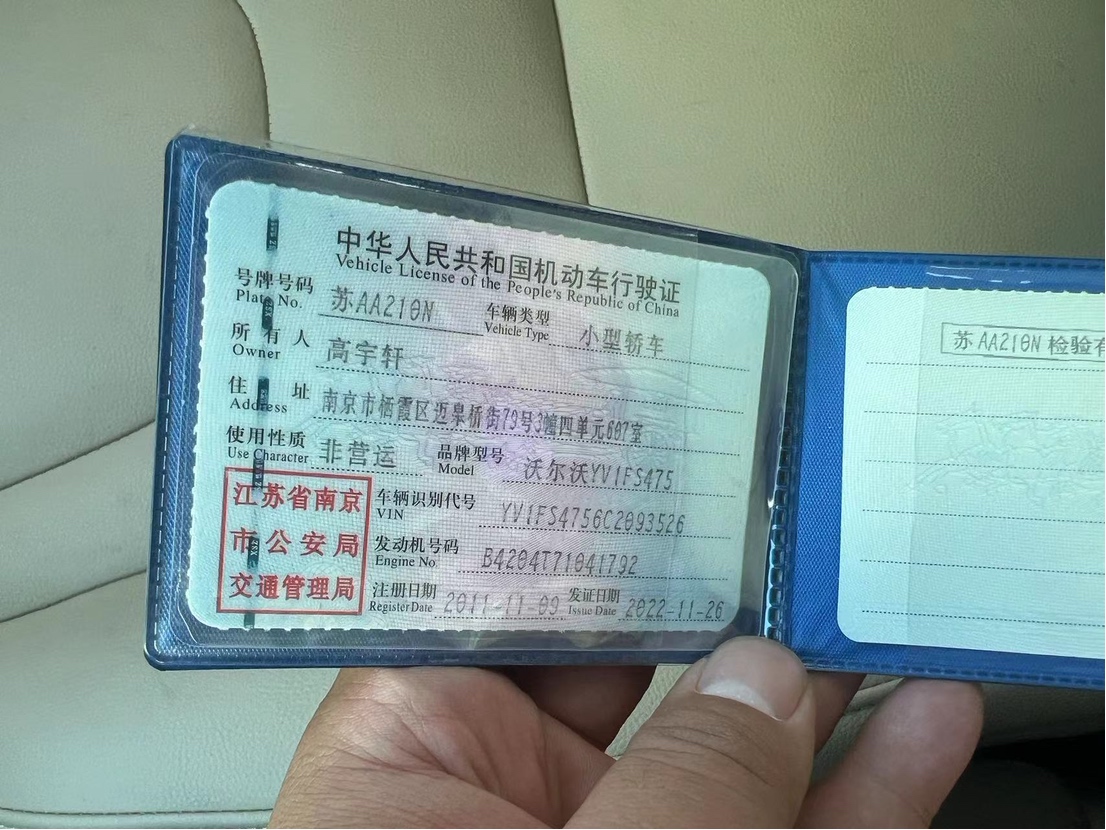 中华人民共和国机动车行驶证
Vehicle License of the People's Republic of China
号牌号码 苏AA210N 车辆类型 小型轿车
Plate No. Vehicle Type
所有人 高宇轩
Owner
住址 南京市栖霞区迈皋桥街79号3幢四单元607室
Address
使用性质 非营运 品牌型号 沃尔沃YV1FS475
Use Character Model
江苏省南京
市公安局
交通管理局
车辆识别代号 YV1FS4756C2093526
VIN
发动机号码 B4204T71041792
Engine No.
注册日期 2011-11-09 发证日期 2022-11-26
Register Date Issue Date
苏AA210N 检验有